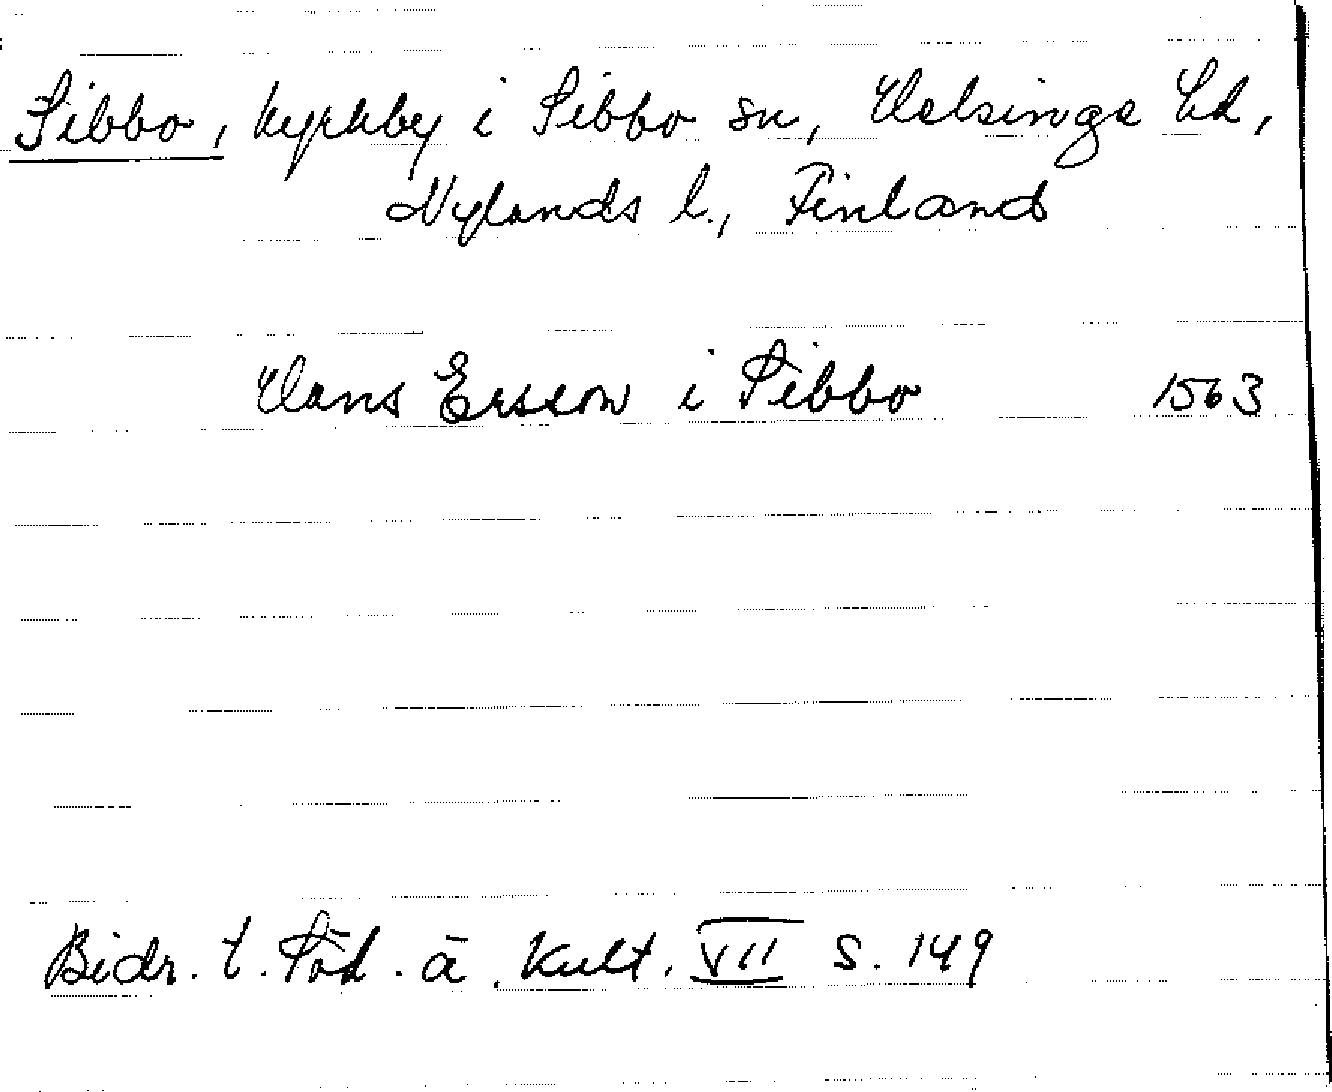 Sibbo, kyrkby i Sibbo sn, Helsinge hd,
Nylands l., Finland
Hans Ersson i Sibbo 1563
Bidr. t. Söd. ä. Kult. VII S. 149